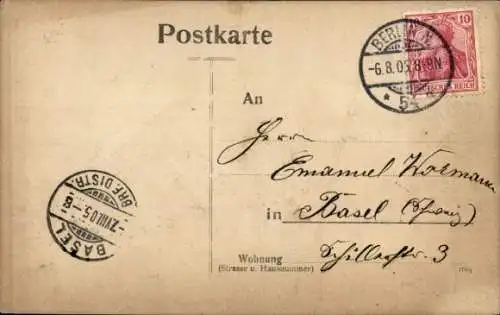 Postkarte
BERLIN N.
-6.8.05.8-9N
* 54 *
10
DEUTSCHES REICH
An
Herrn
Emanuel Wormann
in Basel (Schweiz)
Wohnung Schillerstr. 3
(Strasse u. Hausnummer)
BASEL
-7.VIII.05.-8
BRF. DISTR.